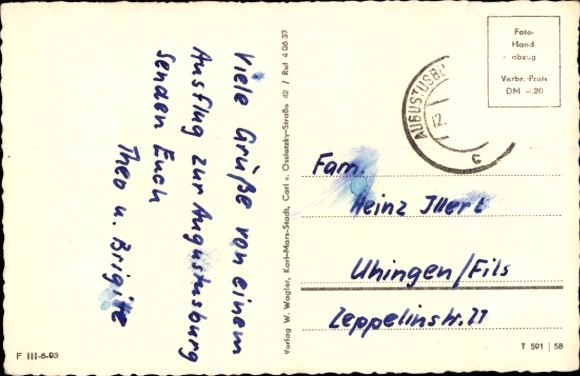 Viele Grüße von einem
Ausflug zur Augustusburg
senden Euch
Theo u. Brigitte
F III-6-93
Verlag W. Wagler, Karl-Marx-Stadt, Carl v. Ossietzky-Straße 42 / Ruf 4 06 37
Foto-
Hand-
abzug
Verbr.-Preis
DM -.20
AUGUSTUSBU
12.
c
Fam.
Heinz Illert
Uhingen/Fils
Zeppelinstr. 21
T 591 | 58